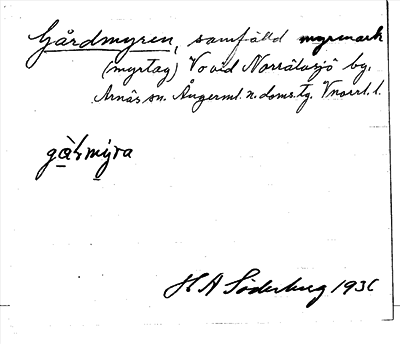 Gårdmyren, samfälld myrmark
(myrtag) V o vid Norrälasjö by,
Arnäs sn. Ångerml. n. doms. tg. Vnorrl. l.
H A Söderberg 1936